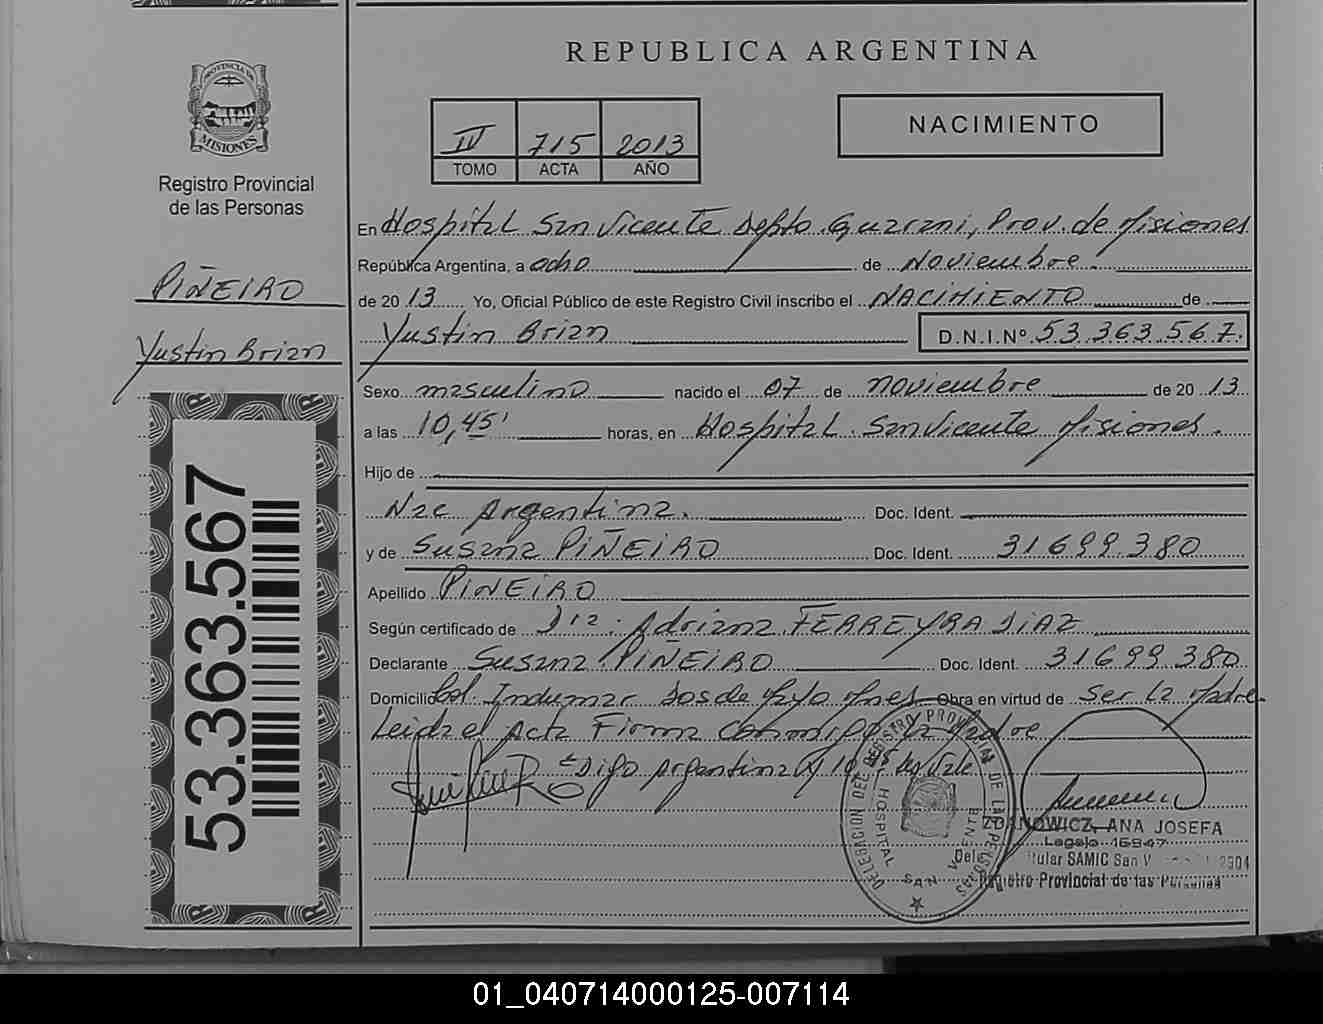 REPUBLICA ARGENTINA
PROVINCIA DE MISIONES
Registro Provincial
de las Personas
IV 715 2013
TOMO ACTA AÑO
NACIMIENTO
PIÑEIRO
Yustin Brian
53.363.567
En Hospital San Vicente Depto. Guarani, Prov. de Misiones
República Argentina, a ocho de Noviembre.
de 2013 Yo, Oficial Público de este Registro Civil inscribo el NACIMIENTO de
Yustin Brian D.N.I.Nº 53.363.567.
Sexo masculino nacido el 07 de noviembre de 2013
a las 10,45' horas, en Hospital San Vicente Misiones.
Hijo de
Nac Argentina. Doc. Ident.
y de Susana PIÑEIRO Doc. Ident. 31699380
Apellido PIÑEIRO
Según certificado de Dra. Adriana FERREYRA DIAZ
Declarante Susana PIÑEIRO Doc. Ident. 31699380
Domicilio Col. Indumar Dos de Mayo Mnes Obra en virtud de Ser la Madre
Leida el Acta Firma Conmigo la Madre
Digo Argentina
DELEGACION DEL REGISTRO PROVINCIAL DE LAS PERSONAS
HOSPITAL SAN VICENTE
ZDANOWICZ, ANA JOSEFA
Legajo 16947
Titular SAMIC San V
Registro Provincial de las Personas
01_040714000125-007114